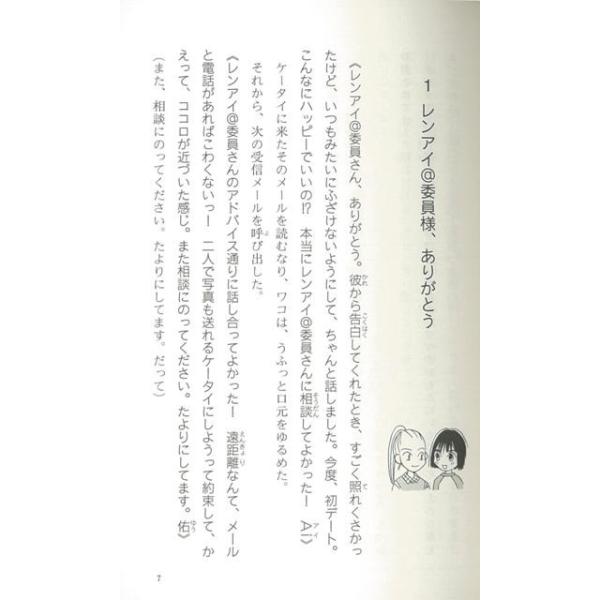 1 レンアイ@委員様、ありがとう
《レンアイ@委員さん、ありがとう。彼から告白してくれたとき、すごく照れくさかっ
たけど、いつもみたいにふざけないようにして、ちゃんと話しました。今度、初デート。
こんなにハッピーでいいの!? 本当にレンアイ@委員さんに相談してよかったー Ai》
ケータイに来たそのメールを読むなり、ワコは、うふっと口元をゆるめた。
それから、次の受信メールを呼び出した。
《レンアイ@委員さんのアドバイス通りに話し合ってよかったー 遠距離なんて、メール
と電話があればこわくないっー 二人で写真も送れるケータイにしようって約束して、か
えって、ココロが近づいた感じ。また相談にのってください。たよりにしてます。佑》
(また、相談にのってください。たよりにしてます。だって)
7